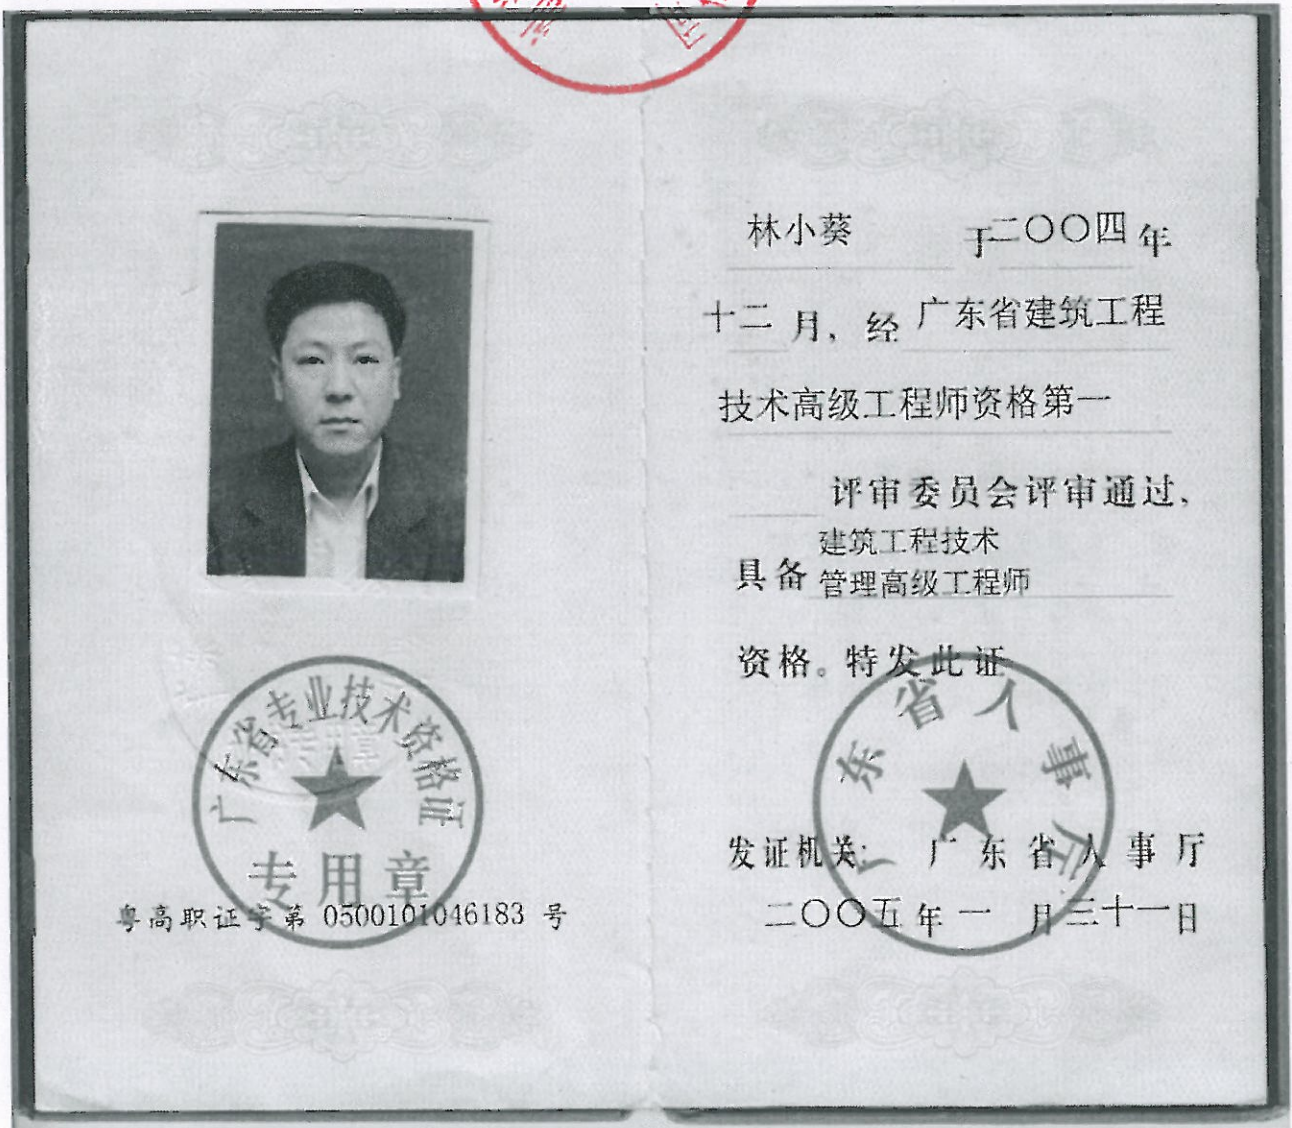 广东省专业技术资格证
专用章
粤高职证字第 0500101046183 号
林小葵 于二〇〇四年
十二月，经广东省建筑工程
技术高级工程师资格第一
评审委员会评审通过，
建筑工程技术
具备 管理高级工程师
资格。特发此证
广东省人事厅
发证机关：广东省人事厅
二〇〇五年一月三十一日